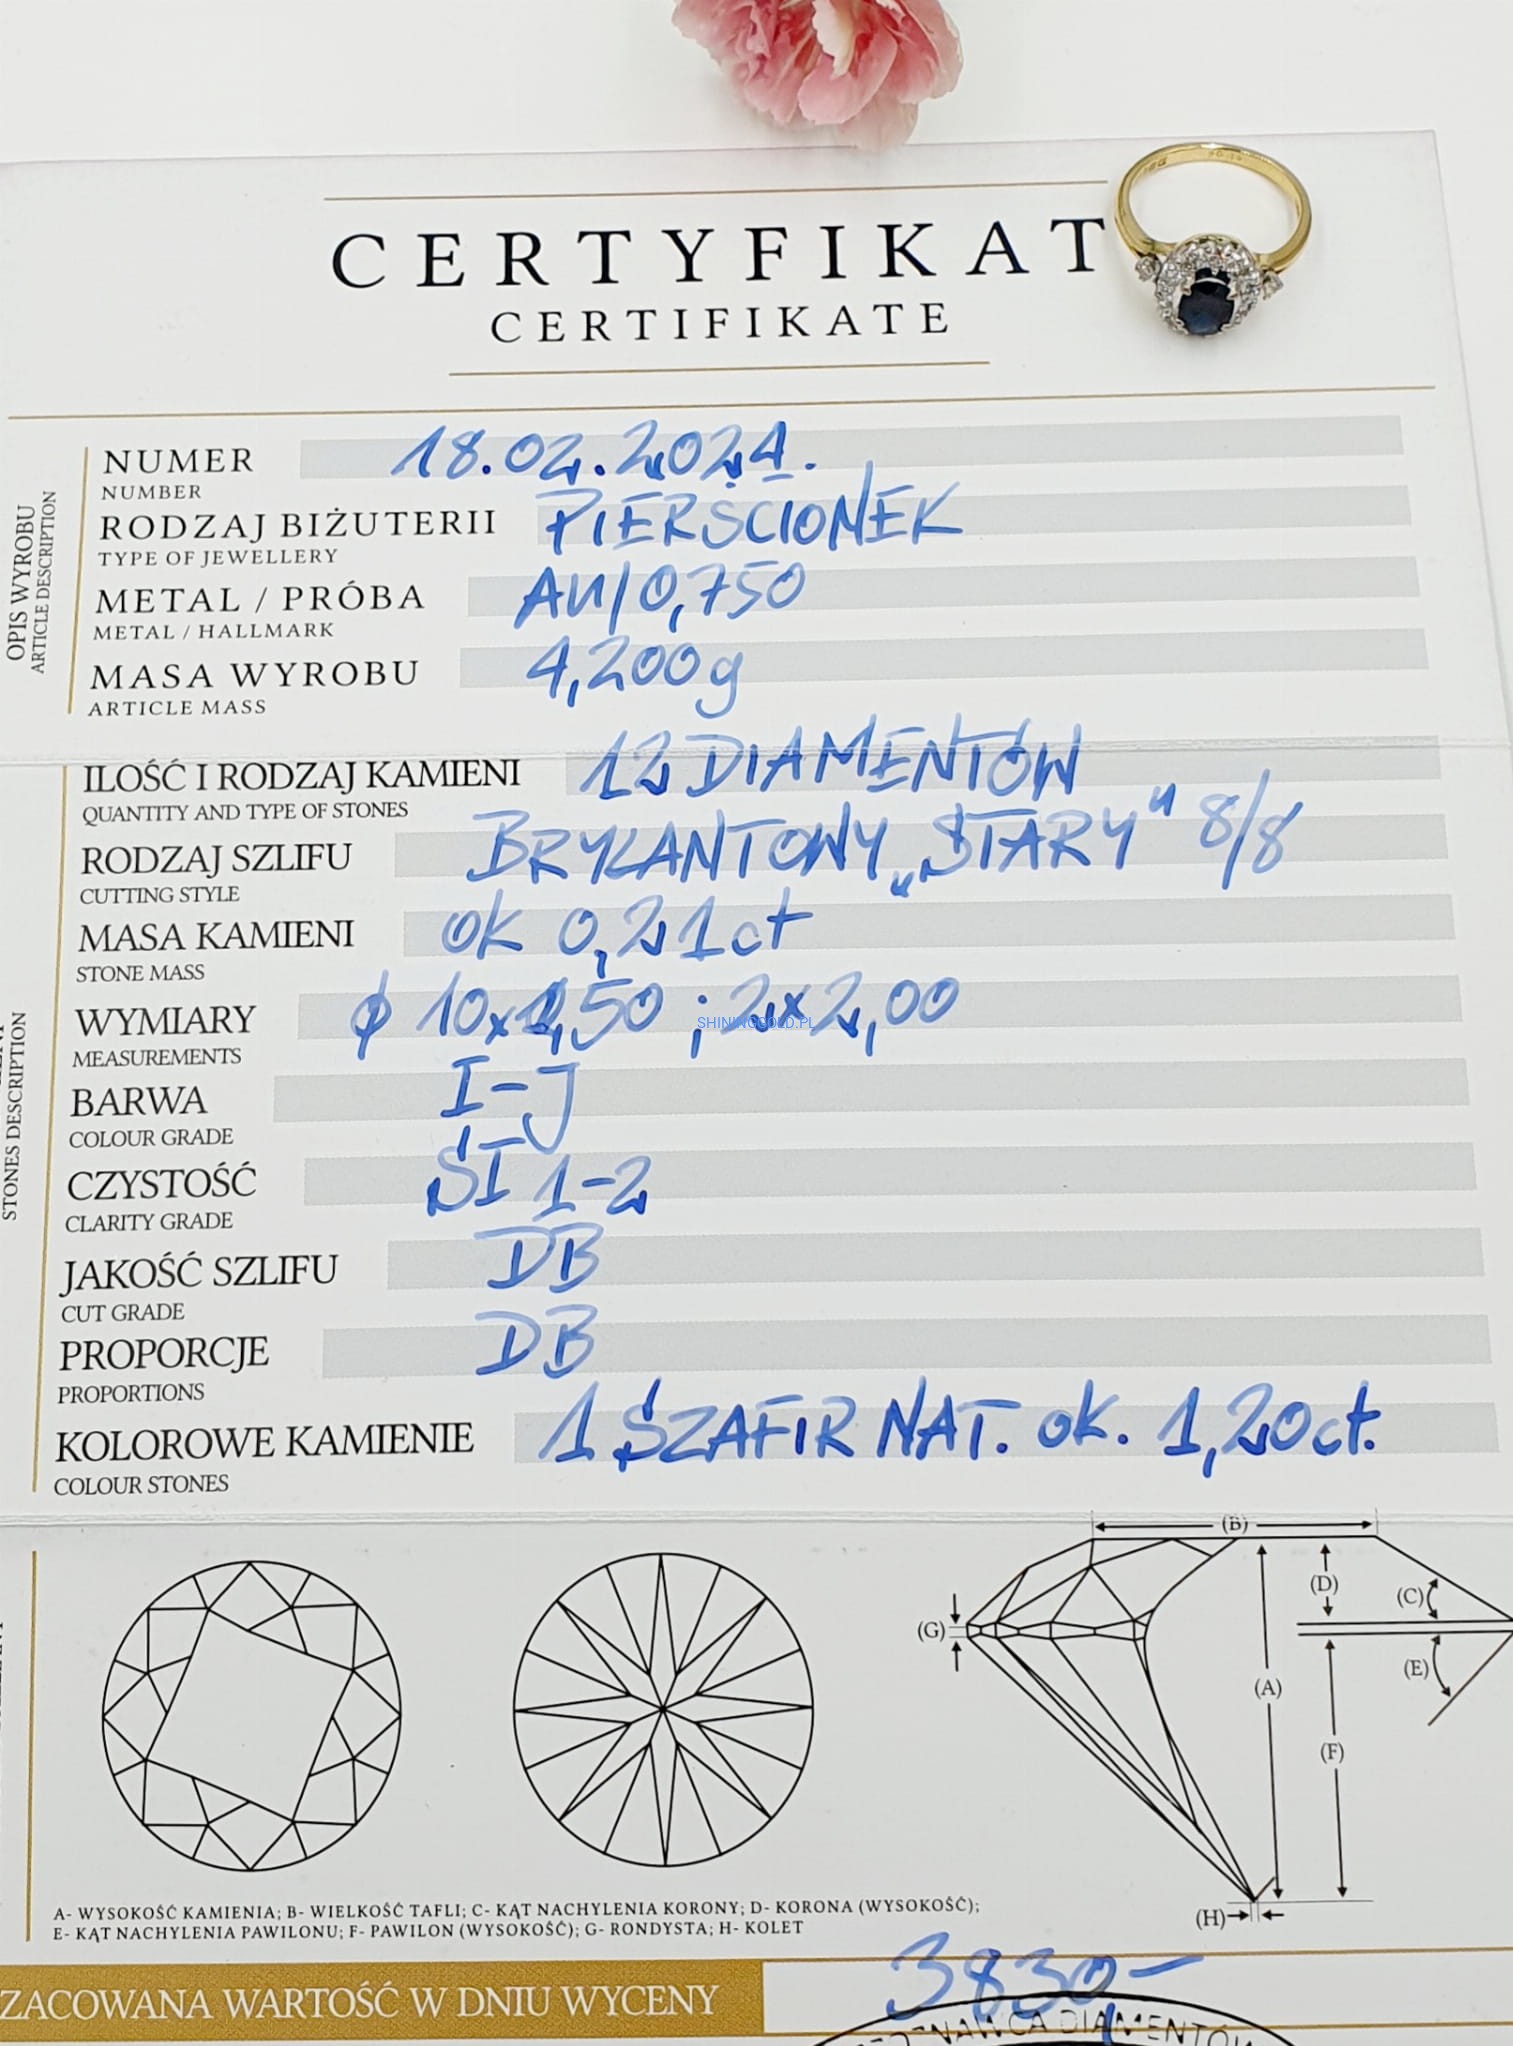 CERTYFIKAT
CERTIFIKATE
OPIS WYROBU
ARTICLE DESCRIPTION
NUMER 18.02.2024.
NUMBER
RODZAJ BIŻUTERII PIERŚCIONEK
TYPE OF JEWELLERY
METAL / PRÓBA AU/0,750
METAL / HALLMARK
MASA WYROBU 4,200g
ARTICLE MASS
STONES DESCRIPTION
ILOŚĆ I RODZAJ KAMIENI 12 DIAMENTÓW
QUANTITY AND TYPE OF STONES
RODZAJ SZLIFU BRYLANTOWY „STARY" 8/8
CUTTING STYLE
MASA KAMIENI ok 0,21ct
STONE MASS
WYMIARY ϕ 10x1,50 ; 2x2,00
SHININGGOLD.PL
MEASUREMENTS
BARWA I-J
COLOUR GRADE
CZYSTOŚĆ SI 1-2
CLARITY GRADE
JAKOŚĆ SZLIFU DB
CUT GRADE
PROPORCJE DB
PROPORTIONS
KOLOROWE KAMIENIE 1 SZAFIR NAT. ok. 1,20ct.
COLOUR STONES
(B)
(D)
(C)
(G)
(E)
(A)
(F)
(H)
A- WYSOKOŚĆ KAMIENIA; B- WIELKOŚĆ TAFLI; C- KĄT NACHYLENIA KORONY; D- KORONA (WYSOKOŚĆ);
E- KĄT NACHYLENIA PAWILONU; F- PAWILON (WYSOKOŚĆ); G- RONDYSTA; H- KOLET
ZACOWANA WARTOŚĆ W DNIU WYCENY 3830,-
DIAMENTÓW